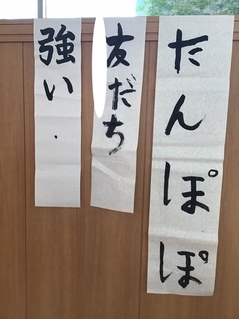 たんぽぽ
友だち
強い.